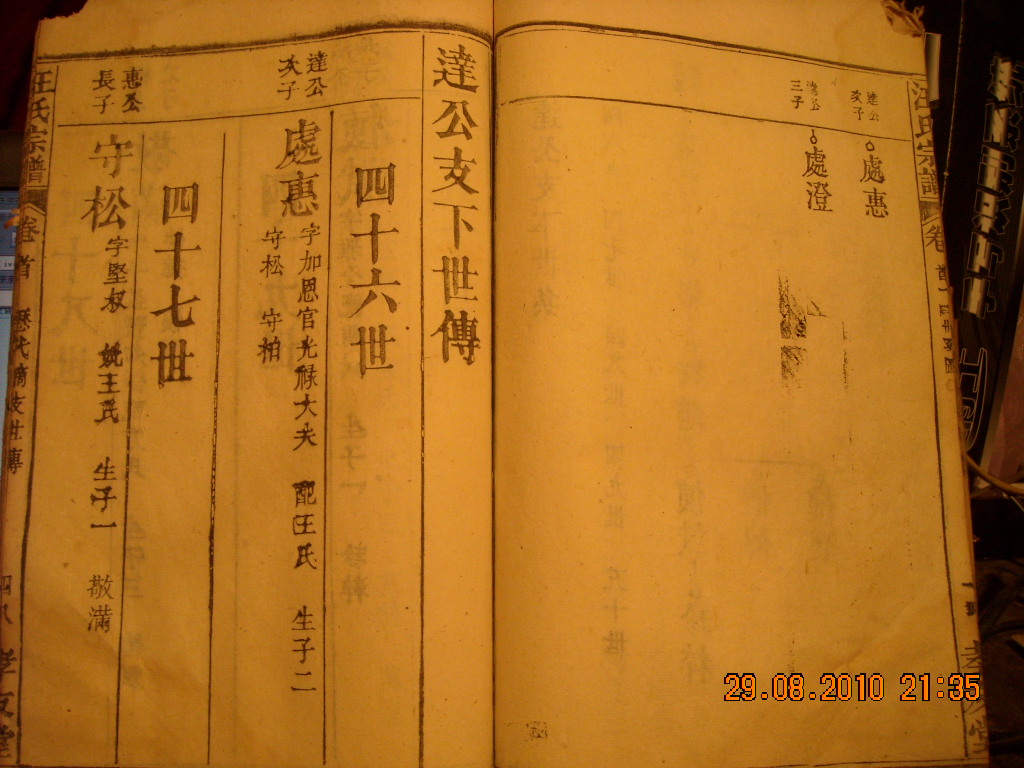 汪氏宗譜
卷
達公
次子
處惠
達公
三子
處澄
達公支下世傳
四十六世
達公
次子
處惠
字加恩官光祿大夫 配王氏 生子二
守松 守柏
四十七世
惠公
長子
守松
字堅叔 娶王氏 生子一 敬滿
汪氏宗譜
卷首
歷代
世傳
四八
孝友堂
29.08.2010 21:35